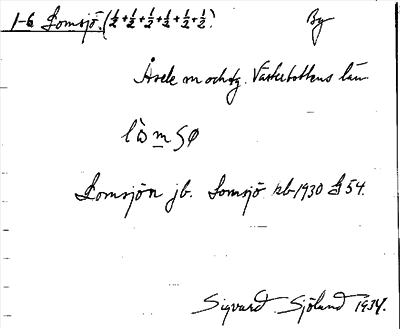 1-6 Lomsjö. (½+½+½+½+½+½) By
Åsele m och tg. Västerbottens län
lò̀m sø
Lomsjön jb. Lomsjö kb 1930 § 54.
Sigvard Sjöland 1934.